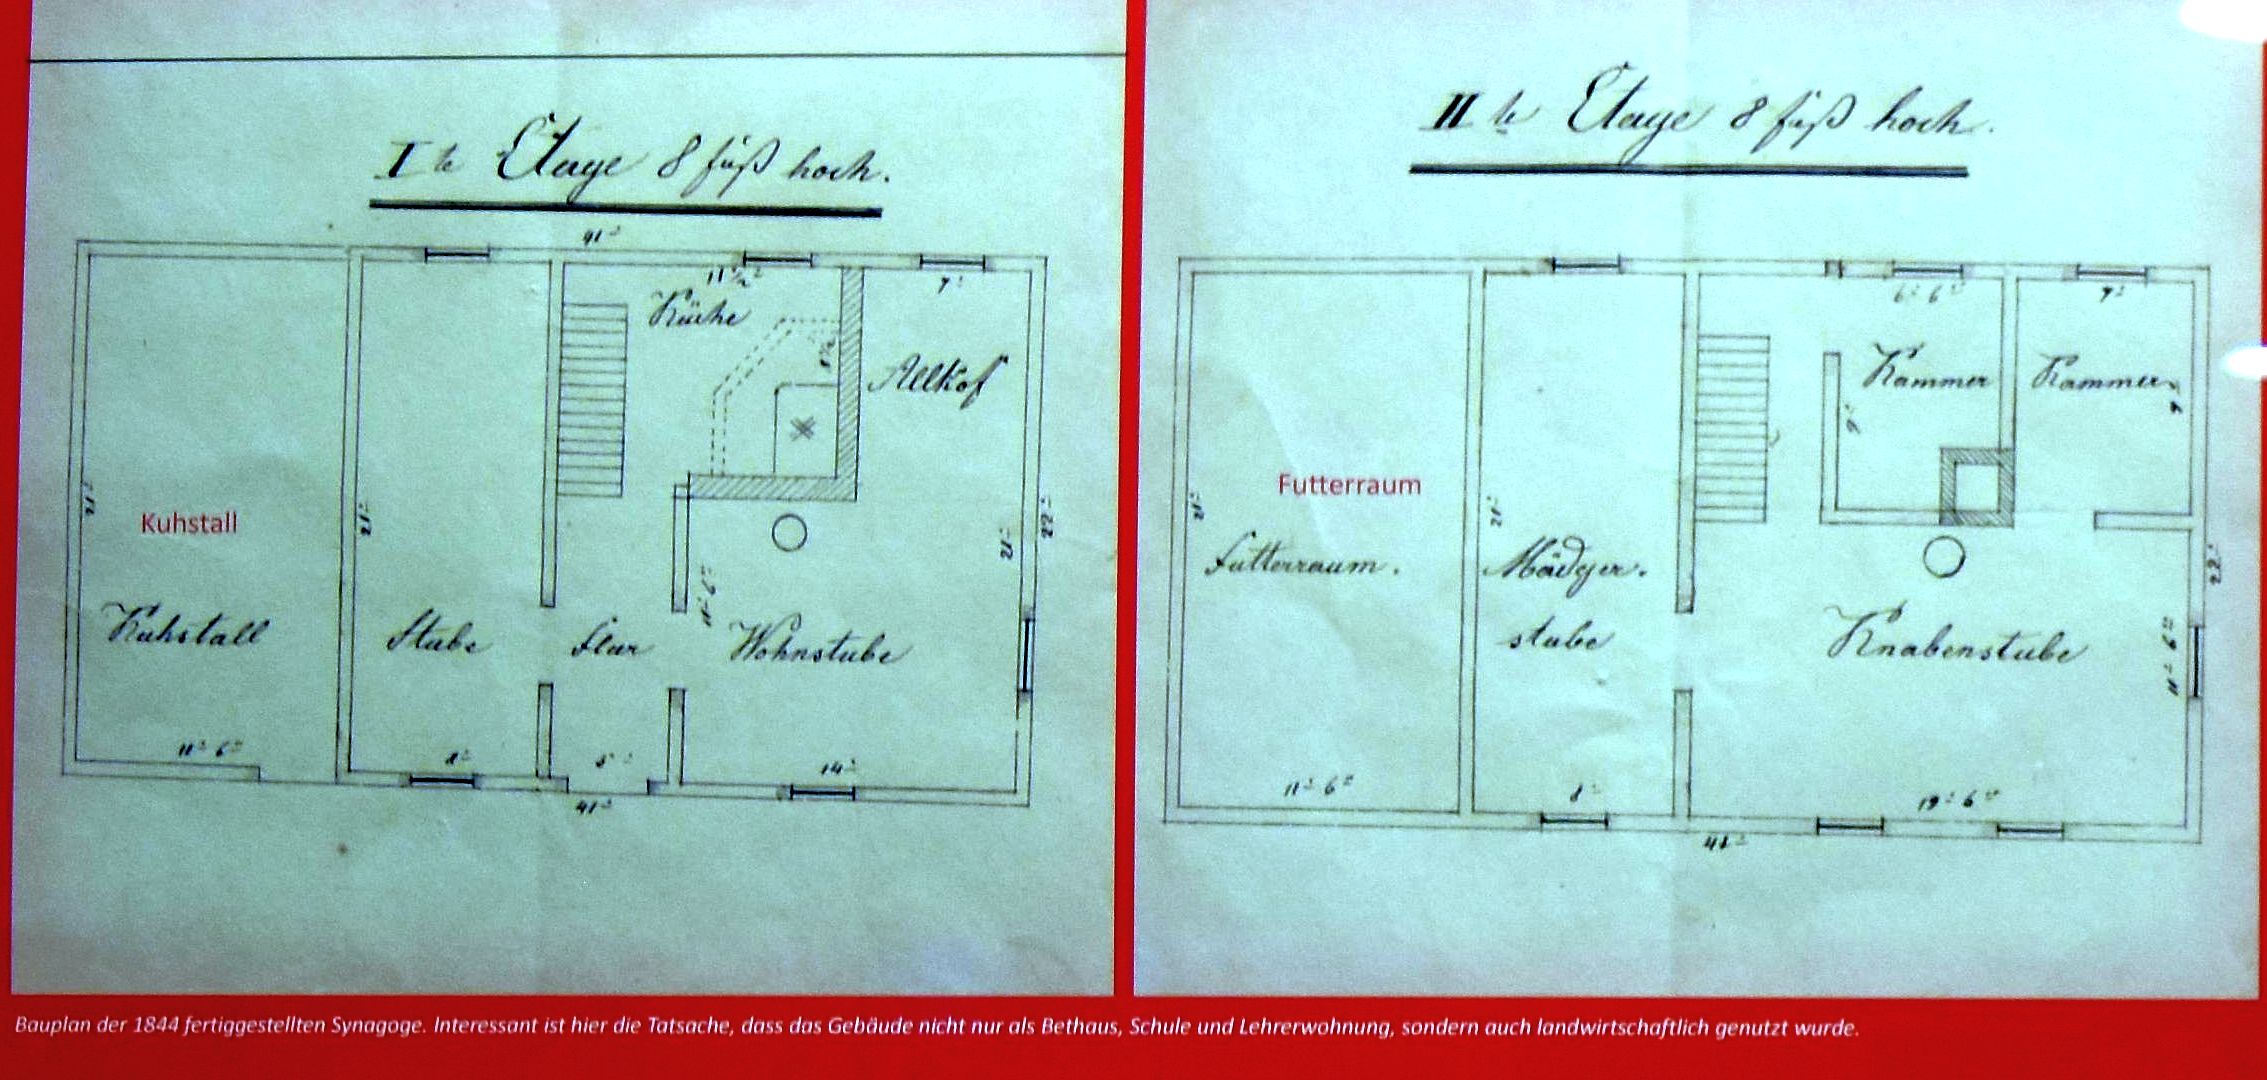 I te Etage 8 fuß hoch.
41'
11 1/2'
7'
Küche
Allkof
21'
Kuhstall
21'
21'
22'
Kuhstall
Stube
Flur
11' 6"
Wohnstube
11' 6"
8'
5'
14'
41'
II te Etage 8 fuß hoch.
6' 6"
7'
Kammer
Kammer
9'
9
Futterraum
21'
21'
Futterraum.
Mädger.
stube
Knabenstube
22'
11' 6"
11' 6"
8'
19' 6"
41'
Bauplan der 1844 fertiggestellten Synagoge. Interessant ist hier die Tatsache, dass das Gebäude nicht nur als Bethaus, Schule und Lehrerwohnung, sondern auch landwirtschaftlich genutzt wurde.